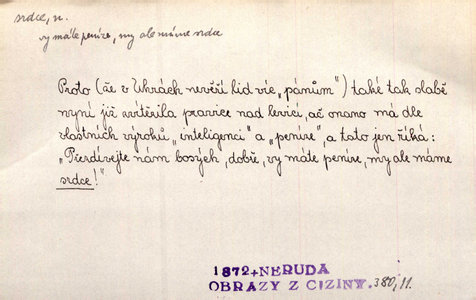 srdce, n.
vy máte peníze, my ale máme srdce
Proto (že v Uhrách nevěří lid víc „pánům“) také tak slabě
nyní již zvítězila pravice nad levicí, ač onano má dle
vlastních výroků „inteligenci“ a „peníze“, a tato jen říká:
„Přezdívejte nám bosých, dobře, vy máte peníze, my ale máme
srdce!“
1872 NERUDA
OBRAZY Z CIZINY. 380, 11.